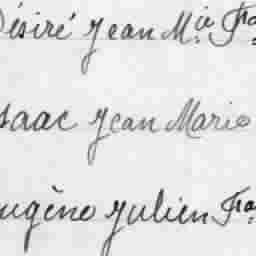 Désiré Jean M.ie Fra
saac Jean Marie
ugène Julien Fra